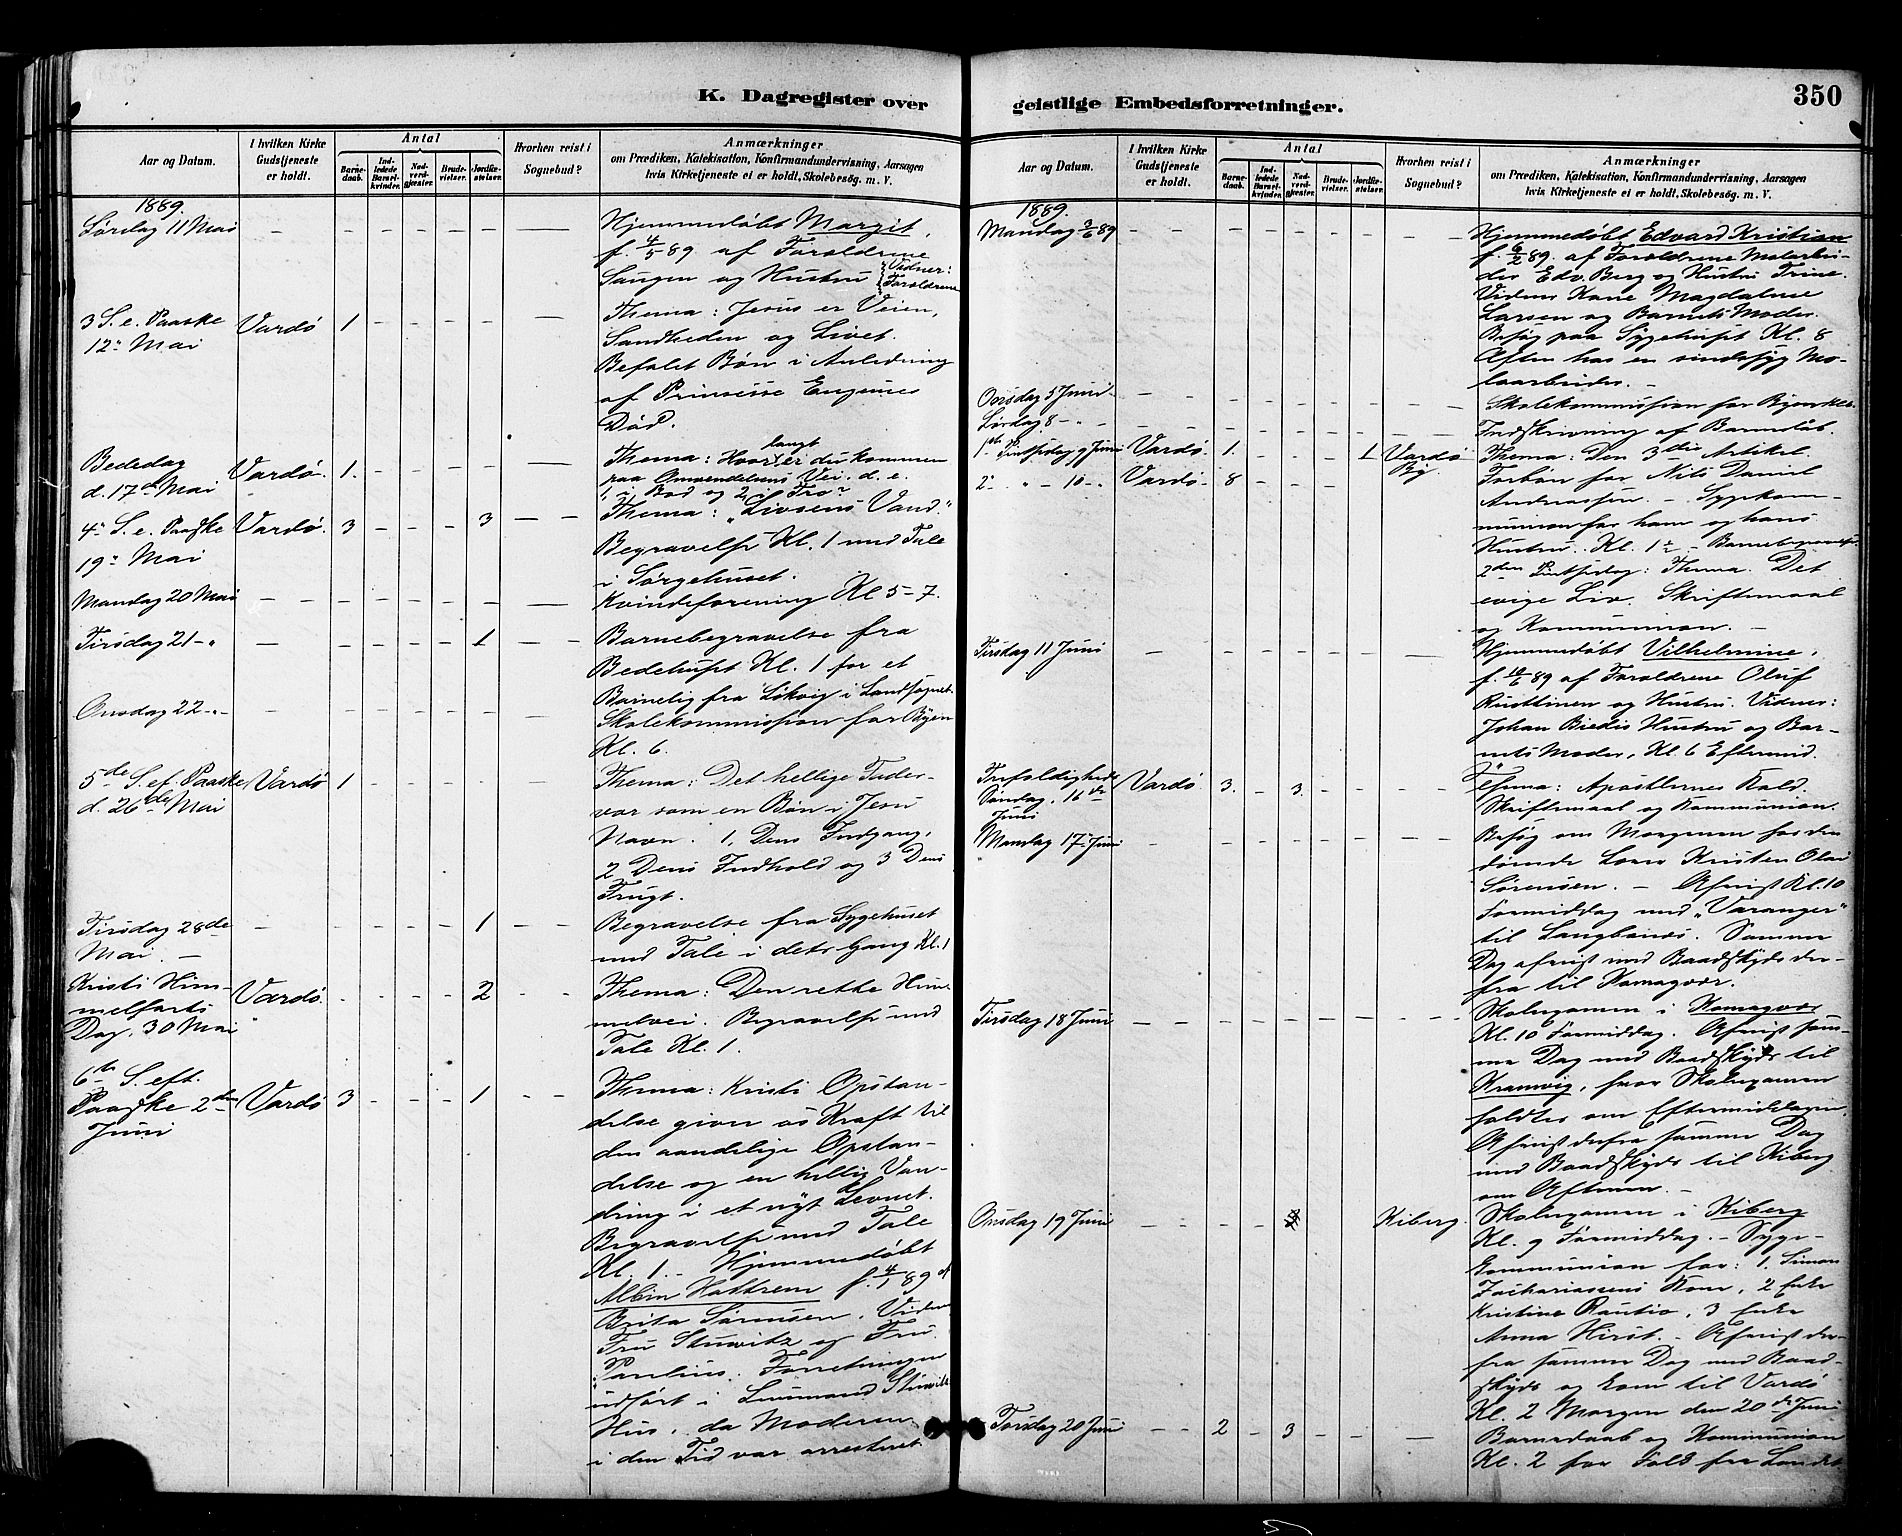 K. Dagregister over
Aar og Datum.
I hvilken Kirke Gudstjeneste er holdt.
Antal
Barnedaab.
Indledede Barselkvinder.
Nadvergjæster.
Brudevielser.
Jordfæstelser.
Hvorhen reist i Sognebud?
Anmærkninger
om Prædiken, Katekisation, Konfirmandundervisning, Aarsagen
hvis Kirketjeneste ei er holdt, Skolebesøg. m. V.
1889.
Lørdag 11 Mai
Hjemmedøbt Margit,
f. 4/5 89 af Forældrene
og Hustru Vidner: Forældrene
3 S. e. Paaske Vardø 1
12te Mai
Thema: Jesus er Veien,
Sandheden og Livet.
Befalet Bøn i Anledning
af Prinsesse Eugenies
Død.
Bededag Vardø. 1.
d. 17de Mai
Thema: Hvor langt er du kommen
paa Omvendelsens Vei. d. e.
1, i Bod og 2, i Tro?
4de S. e. Paaske Vardø. 3 3
19de Mai
Thema: "Livsens Vand."
Begravelse Kl. 1 med Tale
i Sørgehuset.
Mandag 20 Mai
Kvindeforening Kl 5-7.
Tirsdag 21 - " 1
Barnebegravelse fra
Bedehuset Kl. 1 for et
Barnelig fra i Landsognet.
Onsdag 22 - " -
Skolekommission for Byen
Kl. 6.
5de S. ef. Paaske Vardø 1
d. 26de Mai
Thema: Det hellige Fader-
vor som en Bøn i Jesu
Navn. 1, Dens Indgang,
2 Dens Indhold og 3 Dens
Frugt.
Tirsdag 28de 1
Mai. -
Begravelse fra Sygehuset
med Tale i dets Gang Kl. 1
Kristi Him- Vardø. 2
melfarts
Dag, 30 Mai
Thema: Den rette Him-
melvei. Begravelse med
Tale Kl. 1.
6te S. eft.
Paaske 2den Vardø 3 1
Juni
Thema: Kristi Opstan-
delse giver os Kraft til
den aandelige Opstan-
delse og en hellig Van-
dring i et nyt Levnet.
Begravelse med Tale
Kl. 1. - Hjemmedøbt
Albin f. 4/1 89 af
Brita Sørensen. Vidner
Fru Stuwitz og Fru
Forretningen
udført i Stuwitz
Hus, da Moderen
i den Tid var arresteret.
geistlige Embedsforretninger.
350
Aar og Datum.
I hvilken Kirke Gudstjeneste er holdt.
Antal
Barnedaab.
Indledede Barselkvinder.
Nadvergjæster.
Brudevielser.
Jordfæstelser.
Hvorhen reist i Sognebud?
Anmærkninger
om Prædiken, Katekisation, Konfirmandundervisning, Aarsagen
hvis Kirketjeneste ei er holdt, Skolebesøg. m. V.
1889.
Mandag 3/6 89
Hjemmedøbt Edvard Kristian
f. 6/2 89. af Forældrene Moloarbei-
der Edv. Berg og Hustru Trine.
Vidner Kone Magdalene
Larsen og Barnets Moder.
Besøg paa Sygehuset Kl. 8
Aften hos en sindssyg Mo-
loarbeider. -
Onsdag 5 Juni
Skolekommission for Byen Kl. 6.
Lørdag 8 - "
Indskrivning af Barnedåb.
1ste Pintsedag 9 Juni Vardø. 1. 1 Vardø By.
Thema: Den 3die Artikel.
Forbøn for Nils Daniel
Andreassen. - Sygekom-
munion for ham og hans
Hustru. Kl. 1½ - Barnebegravelse.
2 - " - 10 - " Vardø. 8
2den Pintsedag: Thema. Det
evige Liv. Skriftemaal
og Kommunion. -
Tirsdag 11 Juni
Hjemmedøbt Vilhelmine,
f. 10/6 89 af Forældrene Oluf
og Hustru. Vidner:
Johan Hustru og Bar-
nets Moder, Kl. 6 Eftermid.
Trefoldigheds Vardø 3. 3.
Søndag, 16de
Juni
Thema: Apostlernes Kald.
Skriftemaal og Kommunion.
Mandag 17de Juni
Besøg om Morgenen hos den
dømde Kristen Olai
Sørensen. - Afreist Kl. 10
Formiddag med "Varanger"
til Langbunes. Samme
Dag afreist med Baadskyds der-
fra til Komagvær.
Tirsdag 18 Juni
Skolexamen i Komagvær
Kl. 10 Formiddag. Afreist sam-
me Dag med Baadskyds til
Kramvig, hvor Skolexamen
holdtes om Eftermiddagen.
Afreist derfra samme Dag
med Baadskyds til Kiberg
om Aftenen. -
Onsdag 19 Juni Kiberg.
Skolexamen i Kiberg
Kl. 9 Formiddag. - Syge-
kommunion for: 1. Simon
Zachariassens Kone, 2 Enke
Kristine Rautio, 3 Enke
Anna Hirst. - Afreist der-
fra samme Dag med Baad-
skyds og kom til Vardø
Kl. 2 Morgen den 20de Juni
Torsdag 20 Juni 2 3
Barnedaab og Kommunion
Kl. 2 for Folk fra Landet